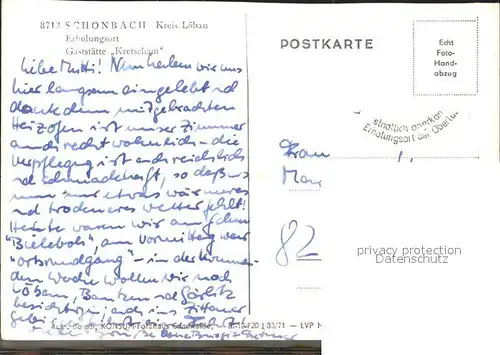 8713 SCHÖNBACH Kreis Löbau
Erholungsort
Gaststätte „Kretscham"
POSTKARTE
Echt
Foto-
Hand-
abzug
staatlich anerkan
Erholungsort der Oberlau
Liebe Mutti! Nun haben wir uns
hier langsam eingelebt und
dank dem mitgebrachten
Heizofen ist unser Zimmer
auch recht wohnlich - die
Verpflegung ist auch reichlich
und schmackhaft, so daß
nur etwas wärmeres
und trockeneres Wetter fehlt!
Heute waren wir auf dem
"Bieleboh", am Vormittag war
"Ortsrundgang" - in der kommen-
den Woche wollen wir noch
Löbau, Bautzen und Görlitz
besichtigen, auch ins Zittauer
Frau
82
privacy protection
Datenschutz
KONSUM-Fotohaus